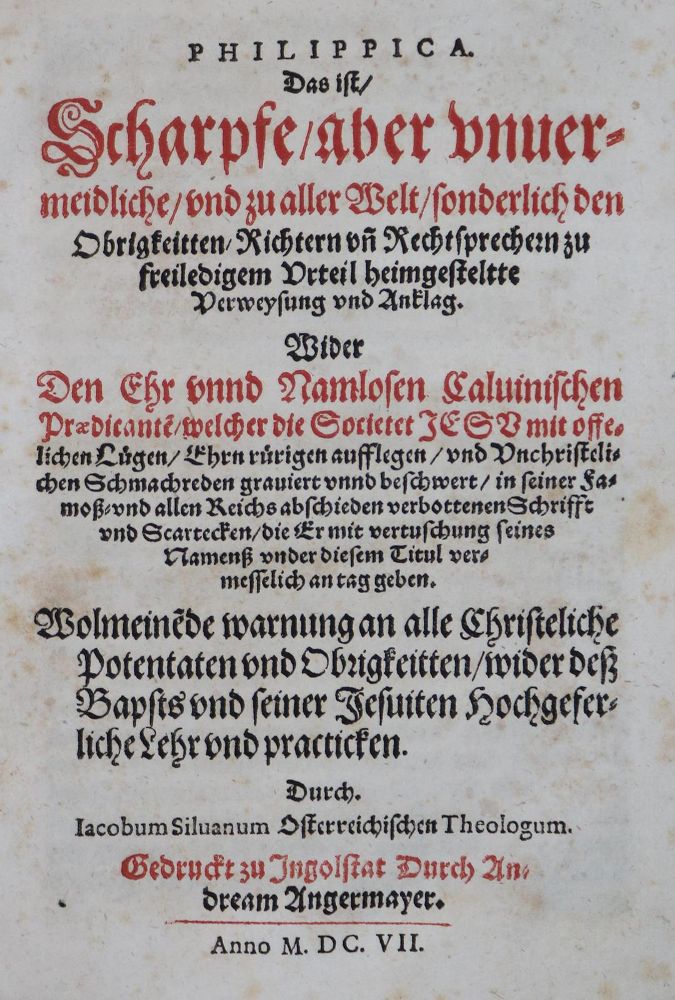 PHILIPPICA.
Das ist/
Scharpfe/aber vnuer-
meidliche/vnd zu aller Welt/sonderlich den
Obrigkeitten/Richtern vñ Rechtsprechern zu
freiledigem Vrteil heimgesteltte
Verweysung vnd Anklag.
Wider
Den Ehr vnnd Namlosen Caluinischen
Prædicantẽ/welcher die Societet JESV mit offe-
lichen Lügen/ Ehrn rürigen aufflegen/vnd Vnchristeli-
chen Schmachreden grauiert vnnd beschwert/in seiner Fa-
moß-vnd allen Reichs abschieden verbottenen Schrifft
vnd Scartecken/die Er mit vertuschung seines
Namenß vnder diesem Titul ver-
messelich an tag geben.
Wolmeinẽde warnung an alle Christeliche
Potentaten vnd Obrigkeitten/wider deß
Bapsts vnd seiner Jesuiten Hochgefer-
liche Lehr vnd practicken.
Durch.
Iacobum Siluanum Osterreichischen Theologum.
Gedruckt zu Ingolstat Durch An-
dream Angermayer.
Anno M. DC. VII.